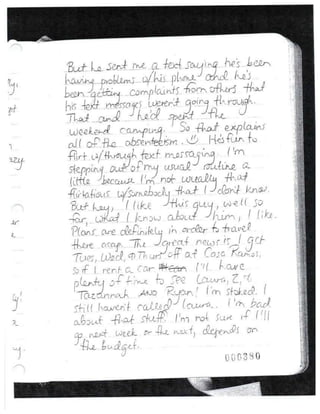 But he sent me a text saying he's been
having problems w/his phone and he's
been getting complaints from others that
his text messages weren't going through.
That and he'd spent the
weekend camping. So that explains
all of the absenteeism. ☺ He's fun to
flirt w/through text messaging. I'm
stepping out of my usual routine a
little because I'm not usually that
flirtatious w/somebody that I don't know.
But hey, I like this guy, well so
far, what I know about him, I like.
Plans are definitely in order to travel
there asap. The great news is I get
Tues, Wed, & Thurs off at Casa Ramos.
so if I rent a car I'll have
plenty of time to see Laura,
AND Ryan! I'm stoked. I
still haven't called Laura.. I'm bad
about that stuff. I'm not sure if I'll
go next week or the next, depends on
the budget.
000380